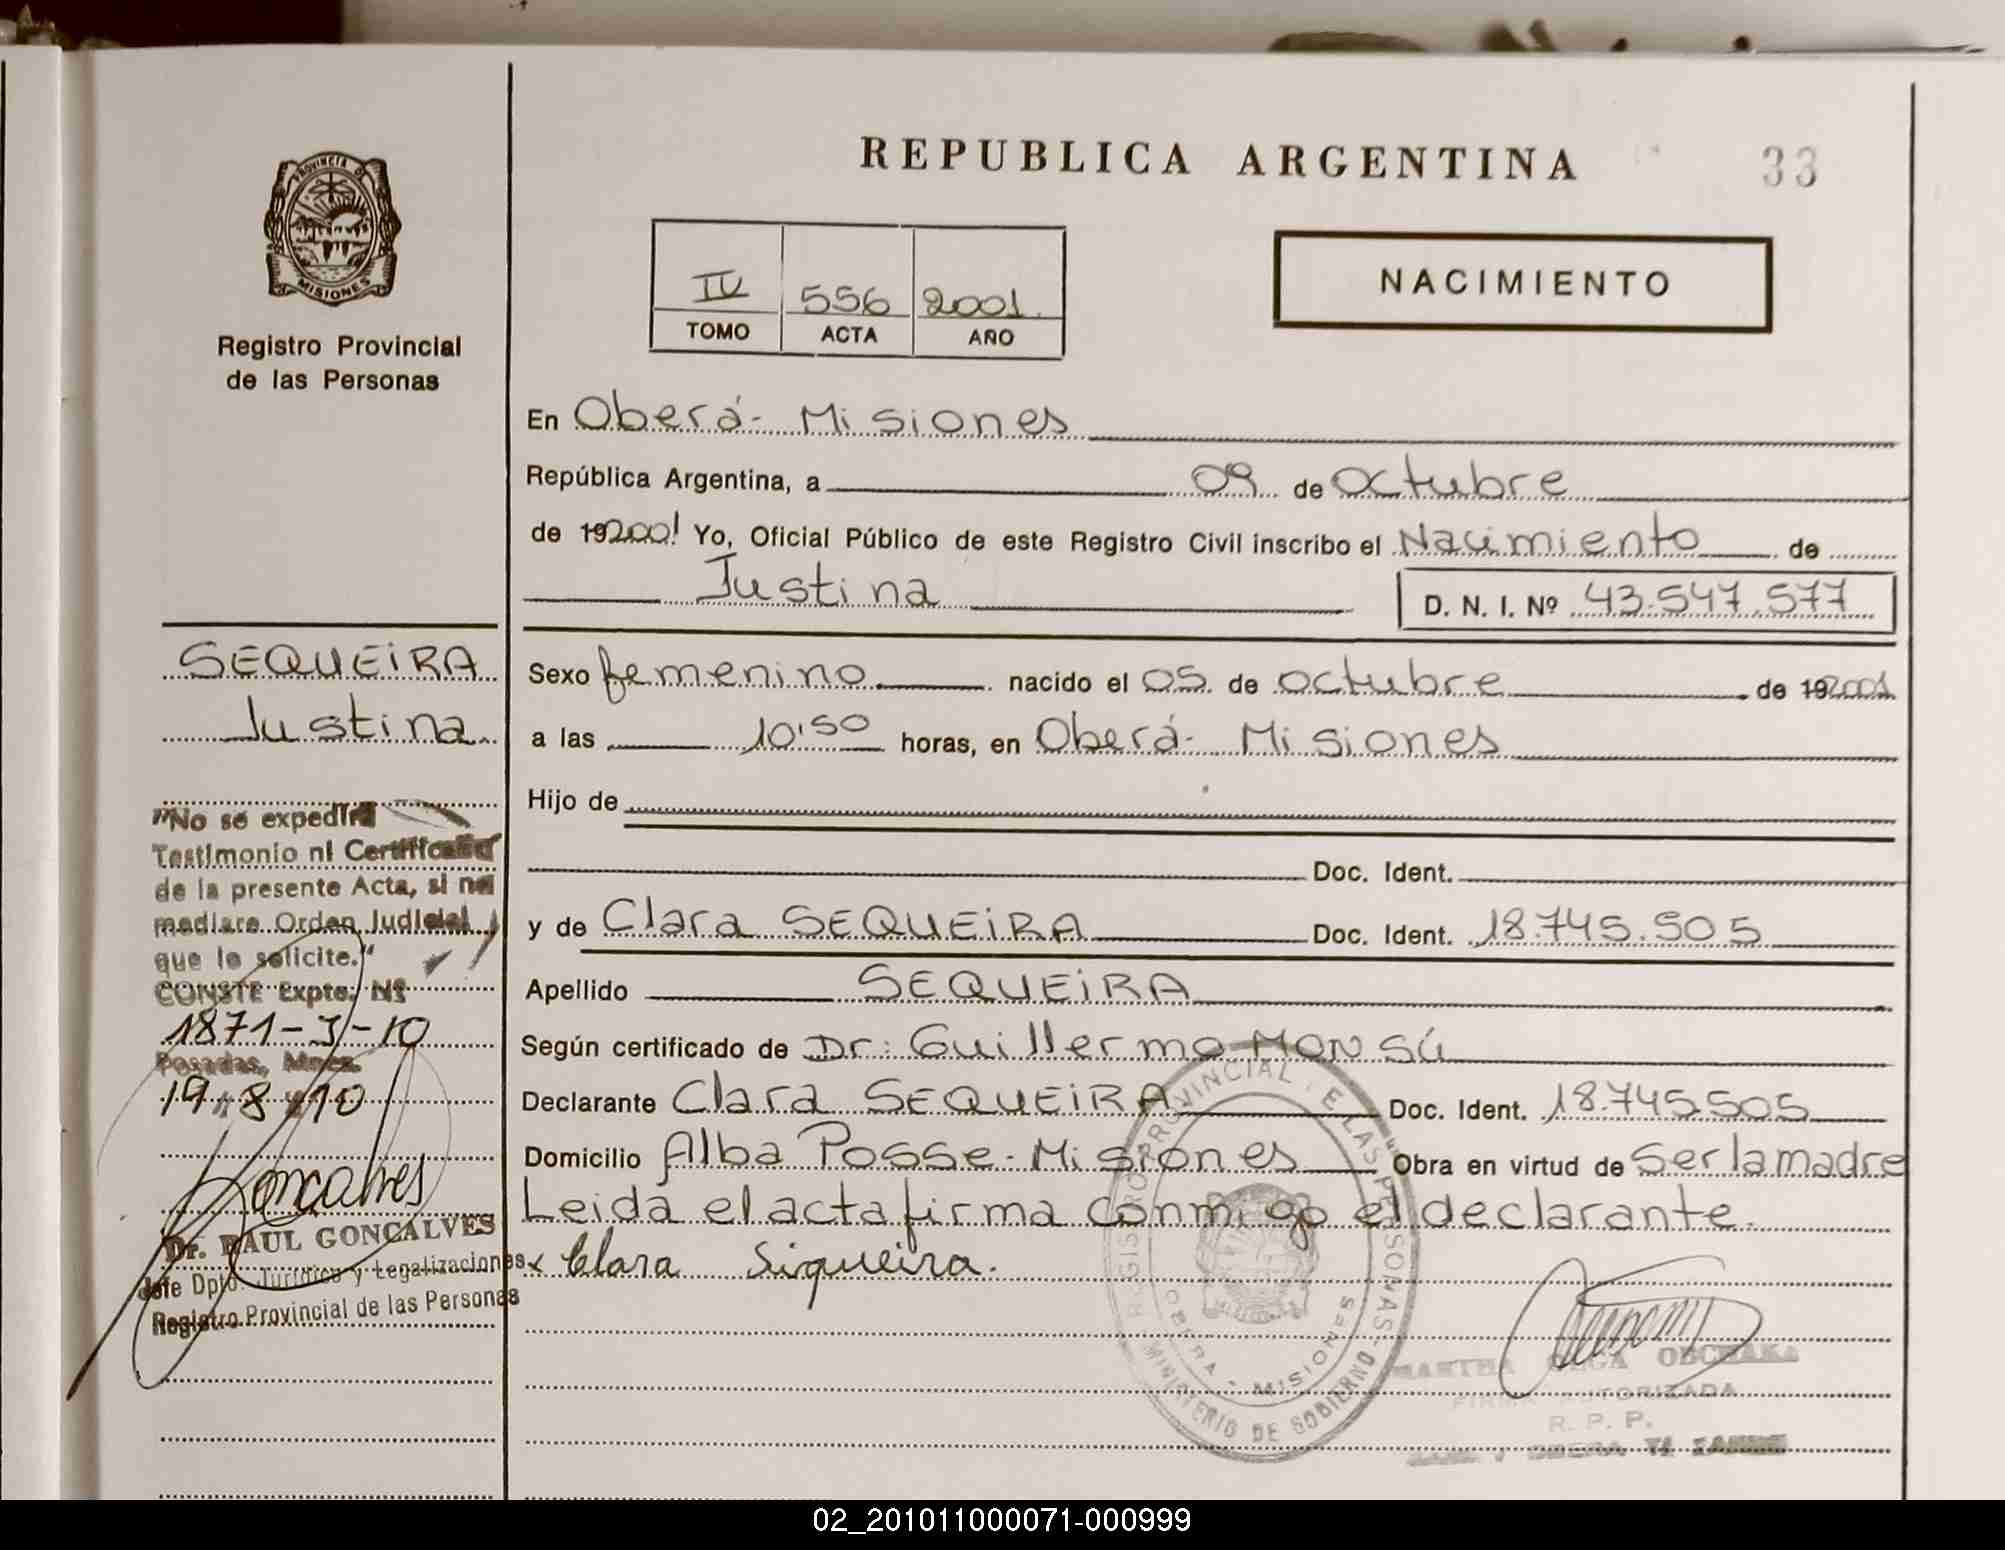 REPUBLICA ARGENTINA
33
PROVINCIA DE
MISIONES
Registro Provincial
de las Personas
IV 556 2001
TOMO ACTA AÑO
NACIMIENTO
En Oberá- Misiones
República Argentina, a 09 de Octubre
de 192001 Yo, Oficial Público de este Registro Civil inscribo el Nacimiento de
Justina D. N. I. Nº 43.547.577
SEQUEIRA
Justina
Sexo femenino nacido el 05 de octubre de 192001
a las 10'50 horas, en Oberá- Misiones
Hijo de
Doc. Ident.
y de Clara SEQUEIRA Doc. Ident. 18.745.505
Apellido SEQUEIRA
Según certificado de Dr: Guillermo MONSÚ
Declarante Clara SEQUEIRA Doc. Ident. 18.745505
Domicilio Alba Posse- Misiones Obra en virtud de Ser la madre
Leida el acta firma conmigo el declarante.
x Clara Siqueira.
"No se expedirá
Testimonio ni Certificado
de la presente Acta, si no
mediare Orden Judicial
que lo solicite."
CONSTE Expte. Nº
1871-J-10
Posadas, Mnes.
19 8 10
Goncalves
Dr. RAUL GONCALVES
Jefe Dpto. Jurídico y Legalizaciones
Registro Provincial de las Personas
REGISTRO PROVINCIAL DE LAS PERSONAS-
MINISTERIO DE GOBIERNO
OBERA - MISIONES
MARTHA OLGA
FIRMA AUTORIZADA
R. P. P.
02_201011000071-000999